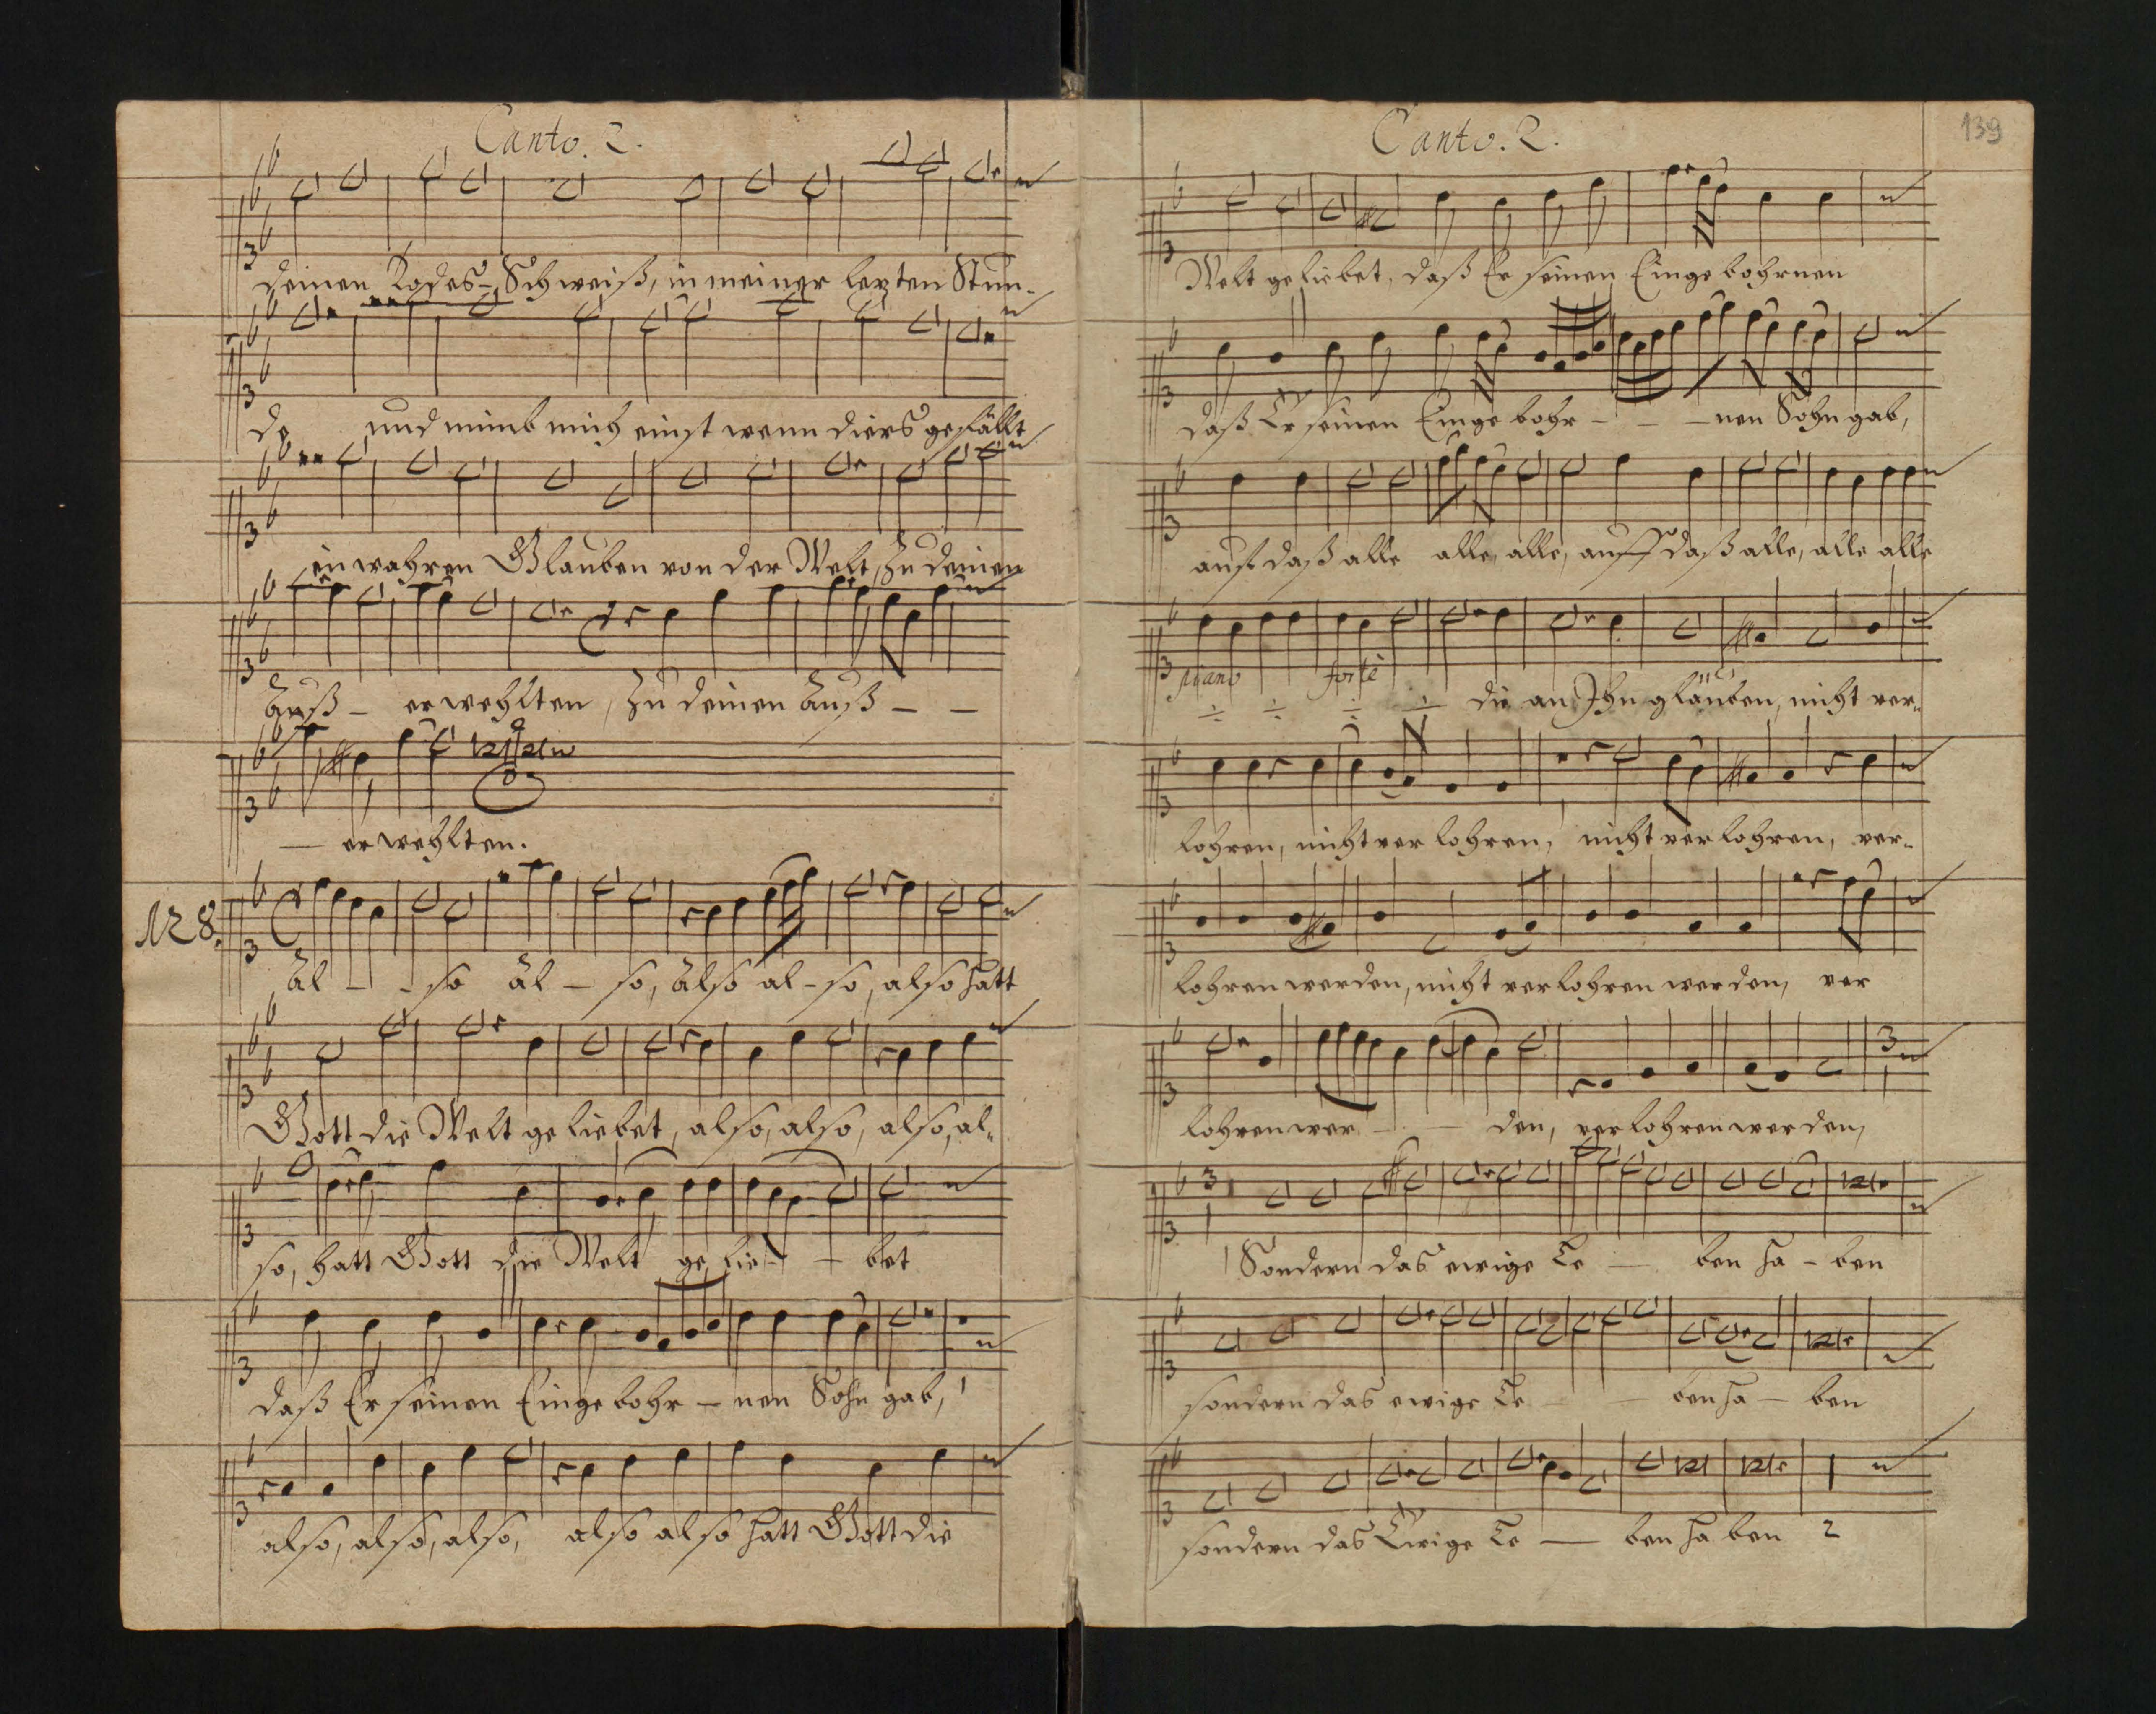 Canto. 2.
deinen Todes-Schweiß, in meiner lezten Stun-
de und nimb mich einst wenn dirs gefällt
in wahren Glauben von der Welt, zu deinen
Auß- er wehlten, zu deinen Auß - -
- er wehlten.
No 8.
Al - - so al - so, also al-so, also hatt
Gott die Welt geliebet, also, also, also, al-
so, hatt Gott die Welt ge lie - bet
daß Er seinen Einge bohr - nen Sohn gab,
also, also, also, also also hatt Gott die
Canto. 2.
139
Welt geliebet, daß Er seinen Einge bohrnen
daß Er seinen Einge bohr - - - nen Sohn gab,
auf daß alle alle, alle, auff daß alle, alle alle
piano forte
die an Ihn gläuben, nicht ver-
lohren, nicht ver lohren, nicht ver lohren, ver-
lohren werden, nicht verlohren werden, ver
lohren wer - - den, verlohren werden,
Sondern das ewige Le - ben ha - ben
sondern das ewige Le - - ben ha - ben
sondern das Ewige Le - ben ha ben 2